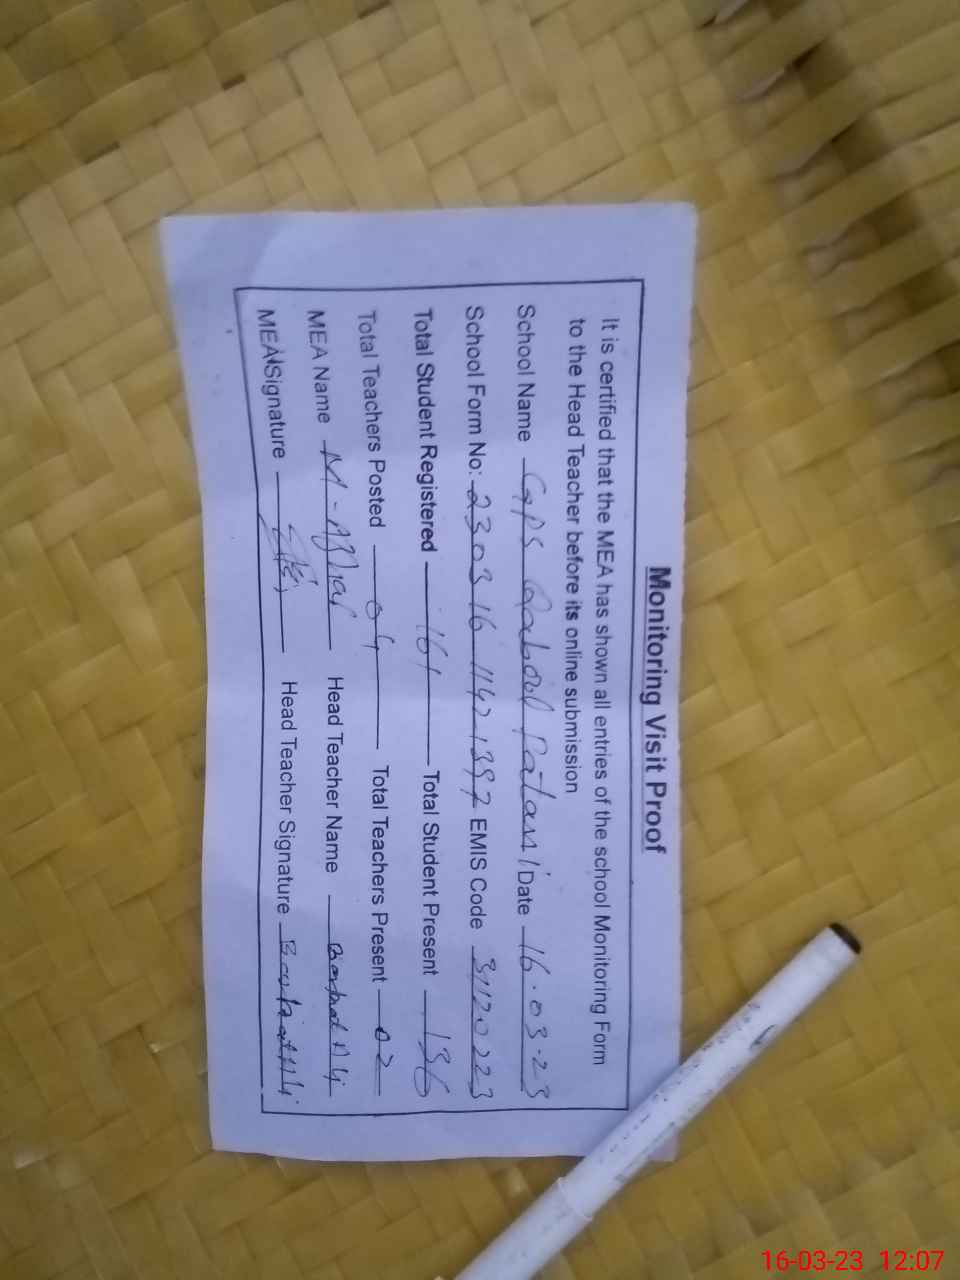 Monitoring Visit Proof
It is certified that the MEA has shown all entries of the school Monitoring Form
to the Head Teacher before its online submission
School Name GPS Date 16.03.23
School Form No: 230316 1142 1397 EMIS Code 31120223
Total Student Registered 161 Total Student Present 136
Total Teachers Posted 04 Total Teachers Present 02
MEA Name M-Afzal Head Teacher Name Ali
MEA Signature Head Teacher Signature Ali
16-03-23 12:07